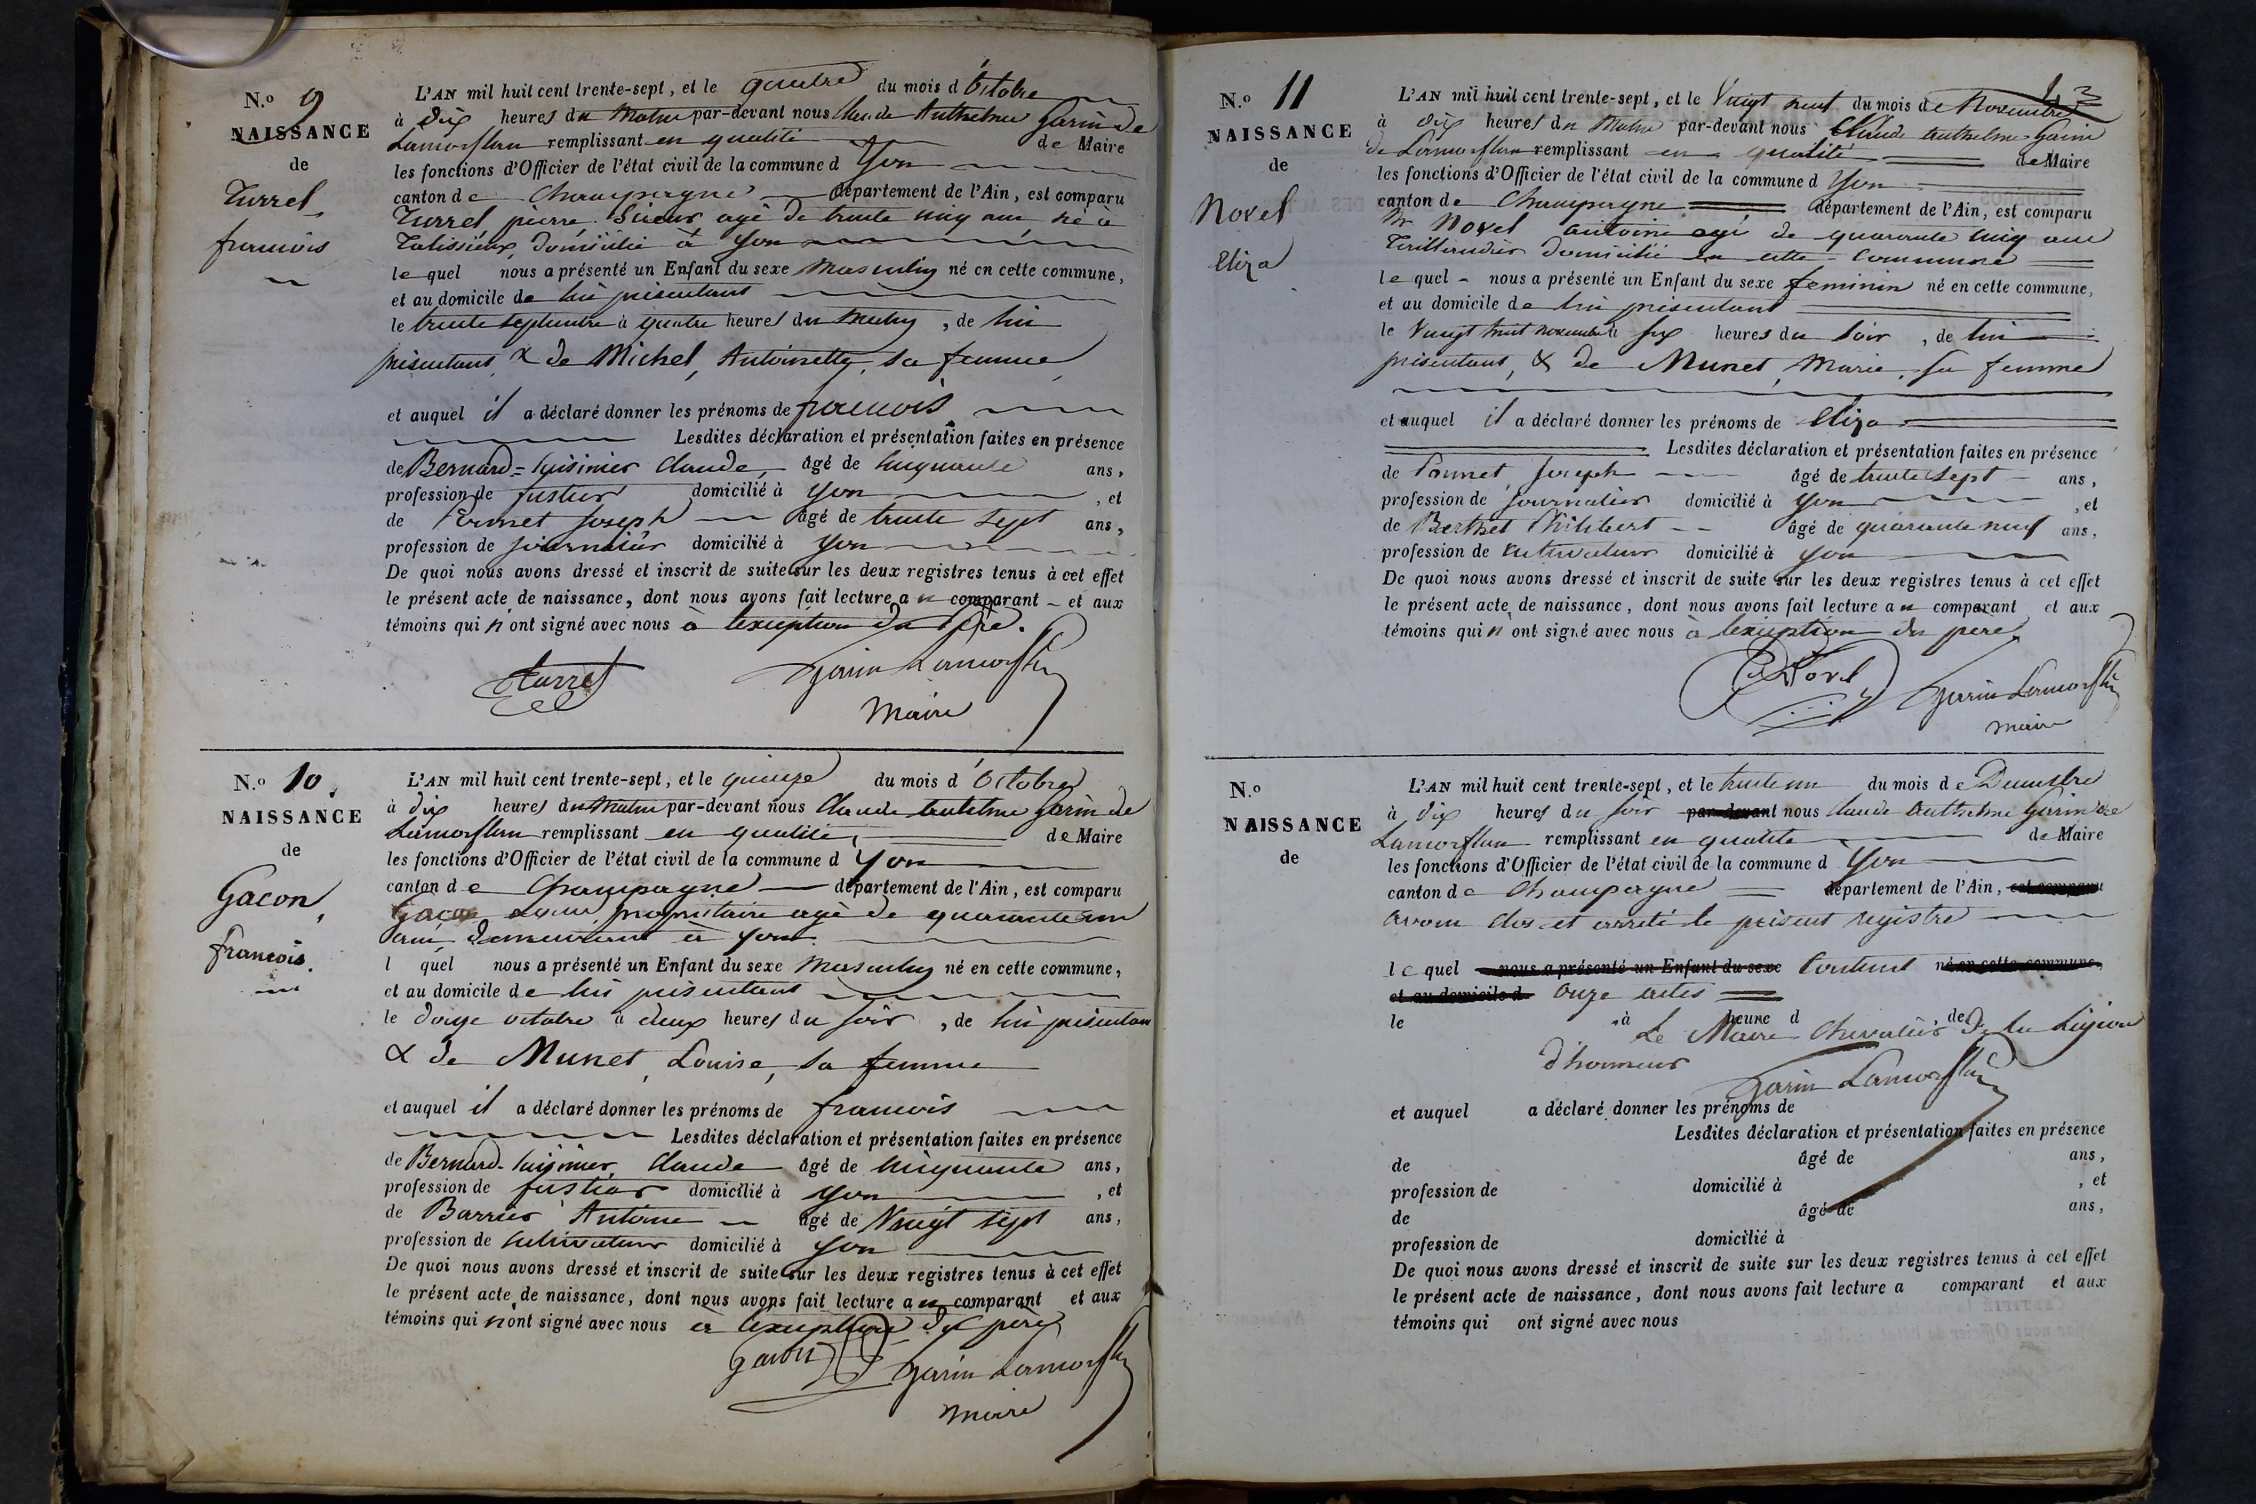 N.o 9
NAISSANCE
de
Turrel
francois
L'AN mil huit cent trente-sept, et le quatre du mois d'Octobre
à dix heures du Matin par-devant nous Claude Anthelme Garin de
Lamorflan remplissant en qualité de Maire
les fonctions d'Officier de l'état civil de la commune d Yon
canton de Champagne département de l'Ain, est comparu
Turrel pierre Sieur agé de trente cinq ans né à
Talissieux, domicilié à Yon
le quel nous a présenté un Enfant du sexe Masculin né en cette commune,
et au domicile de lui présentant
le trente septembre à quatre heures du matin, de lui
présentant, & de Michel, Antoinette, sa femme
et auquel il a déclaré donner les prénoms de francois
Lesdites déclaration et présentation faites en présence
de Bernard=Cuisinier Claude, âgé de cinquante ans,
profession de justier domicilié à Yon, et
de Ponnet Joseph âgé de trente sept ans,
profession de journalier domicilié à Yon
De quoi nous avons dressé et inscrit de suite sur les deux registres tenus à cet effet
le présent acte de naissance, dont nous avons fait lecture au comparant et aux
témoins qui n'ont signé avec nous à l'exception du père.
Turrel Garin Lamorflan
Maire
N.o 10.
NAISSANCE
de
Gacon,
francois.
L'AN mil huit cent trente-sept, et le quinze du mois d'Octobre
à dix heures du Matin par-devant nous Claude Anthelme Garin de
Lamorflan remplissant en qualité, de Maire
les fonctions d'Officier de l'état civil de la commune d Yon
canton de Champagne département de l'Ain, est comparu
Gacon propriétaire agé de quarante un
ans, demeurant à Yon
l quel nous a présenté un Enfant du sexe Masculin né en cette commune,
et au domicile de lui présentant
le douze octobre à deux heures du soir, de lui présentant
& de Munet, Louise, sa femme
et auquel il a déclaré donner les prénoms de francois
Lesdites déclaration et présentation faites en présence
de Bernard-Cuisinier, Claude âgé de cinquante ans,
profession de justier domicilié à Yon, et
de Barrier Antoine âgé de Vingt sept ans,
profession de cultivateur domicilié à Yon
De quoi nous avons dressé et inscrit de suite sur les deux registres tenus à cet effet
le présent acte de naissance, dont nous avons fait lecture au comparant et aux
témoins qui n'ont signé avec nous à l'exception du père
Gacon Garin Lamorflan
Maire
43
N.o 11
NAISSANCE
de
Novel
Eliza
L'AN mil huit cent trente-sept, et le Vingt neuf du mois de Novembre
à dix heures du Matin par-devant nous Claude Anthelme Garin
de Lamorflan remplissant en qualité de Maire
les fonctions d'Officier de l'état civil de la commune d Yon
canton de Champagne département de l'Ain, est comparu
Mr Novel antoine agé de quarante cinq ans
domicilié en cette commune
le quel nous a présenté un Enfant du sexe feminin né en cette commune,
et au domicile de lui présentant
le Vingt huit novembre à six heures du soir, de lui
présentant, & de Munet, Marie, sa femme
et auquel il a déclaré donner les prénoms de Eliza
Lesdites déclaration et présentation faites en présence
de Ponnet, Joseph âgé de trente sept ans,
profession de journalier domicilié à Yon, et
de Berthet Philibert âgé de quarante neuf ans,
profession de cultivateur domicilié à Yon
De quoi nous avons dressé et inscrit de suite sur les deux registres tenus à cet effet
le présent acte de naissance, dont nous avons fait lecture au comparant et aux
témoins qui n'ont signé avec nous à l'exception du père
Novel Garin Lamorflan
maire
N.o
NAISSANCE
de
L'AN mil huit cent trente-sept, et le trente un du mois de Decembre
à dix heures du soir par-devant nous Claude Anthelme Garin de
Lamorflan remplissant en qualité de Maire
les fonctions d'Officier de l'état civil de la commune d Yon
canton de Champagne département de l'Ain, est comparu
avons clos et arreté le présent registre
le quel nous a présenté un Enfant du sexe Contenant né en cette commune,
et au domicile d Onze actes
le à heure d, de
Le Maire Chevalier de la Légion
d'honneur
Garin Lamorflan
et auquel a déclaré donner les prénoms de
Lesdites déclaration et présentation faites en présence
de âgé de ans,
profession de domicilié à, et
de âgé de ans,
profession de domicilié à
De quoi nous avons dressé et inscrit de suite sur les deux registres tenus à cet effet
le présent acte de naissance, dont nous avons fait lecture a comparant et aux
témoins qui ont signé avec nous